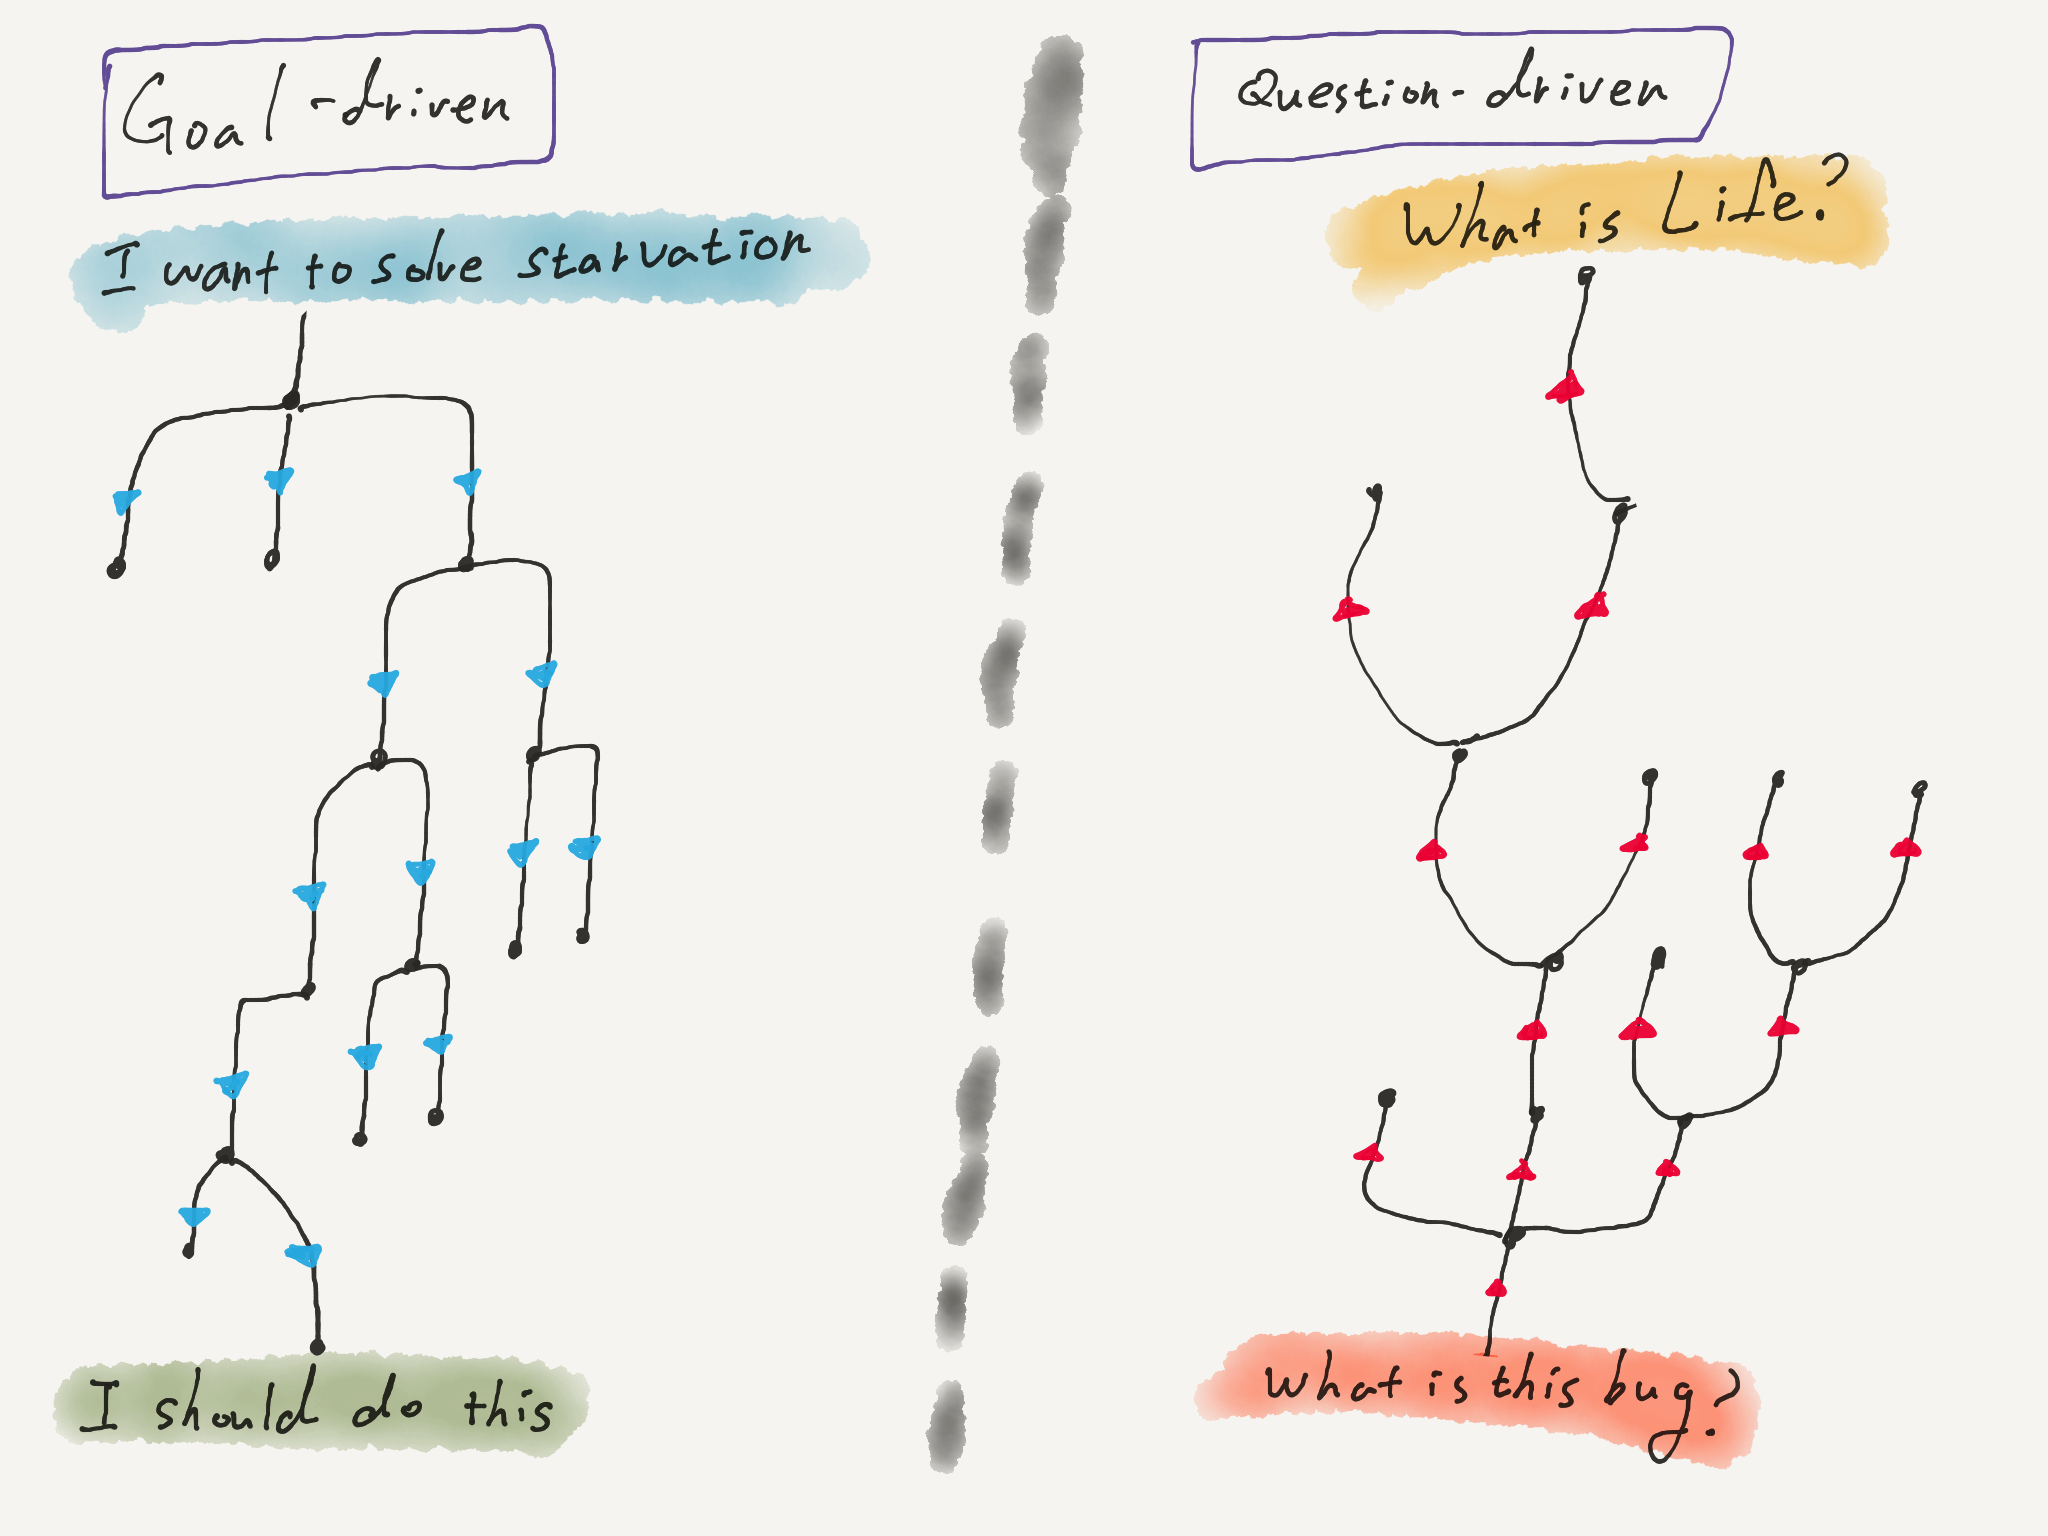 Goal-driven
I want to solve starvation
I should do this
Question-driven
What is Life?
What is this bug?